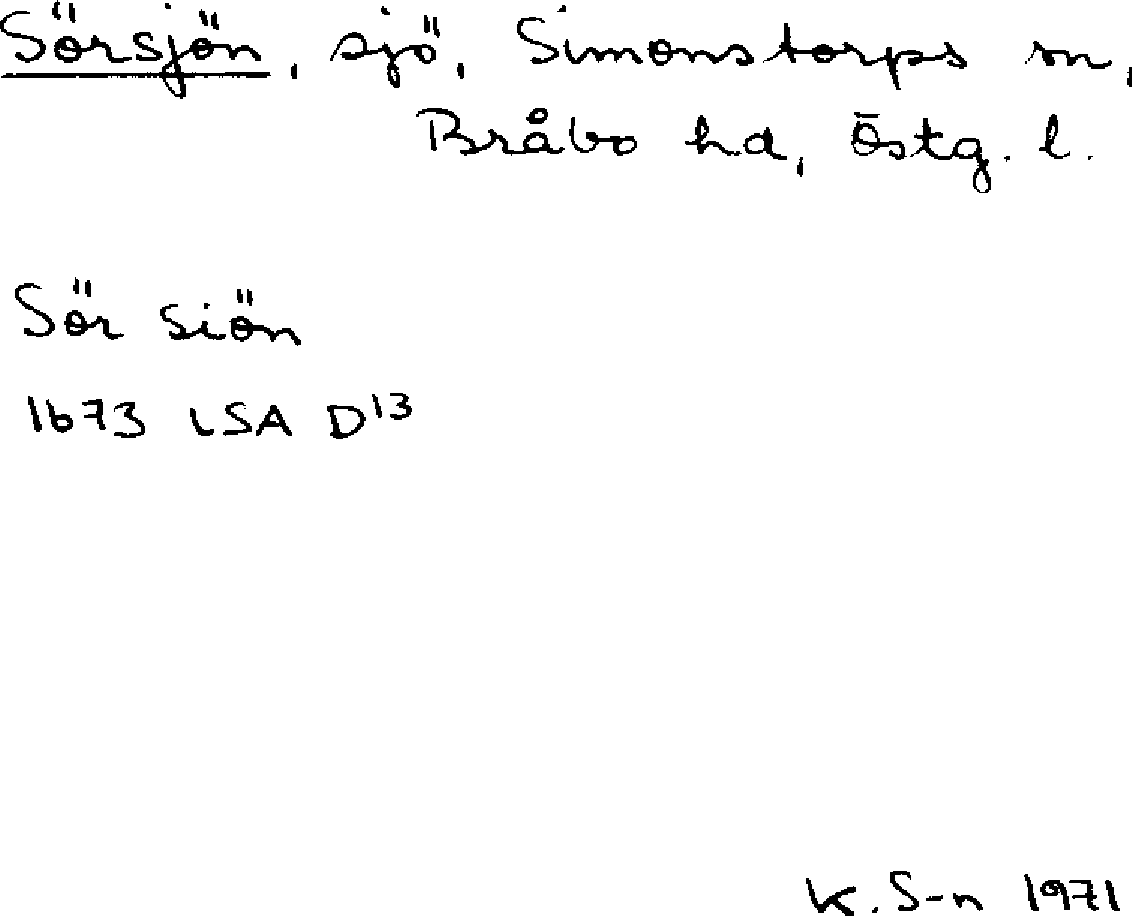 Sörsjön, sjö, Simonstorps sn,
Bråbo hd, Östg. l.
Sör siön
1673 LSA D13
K. S-n 1971